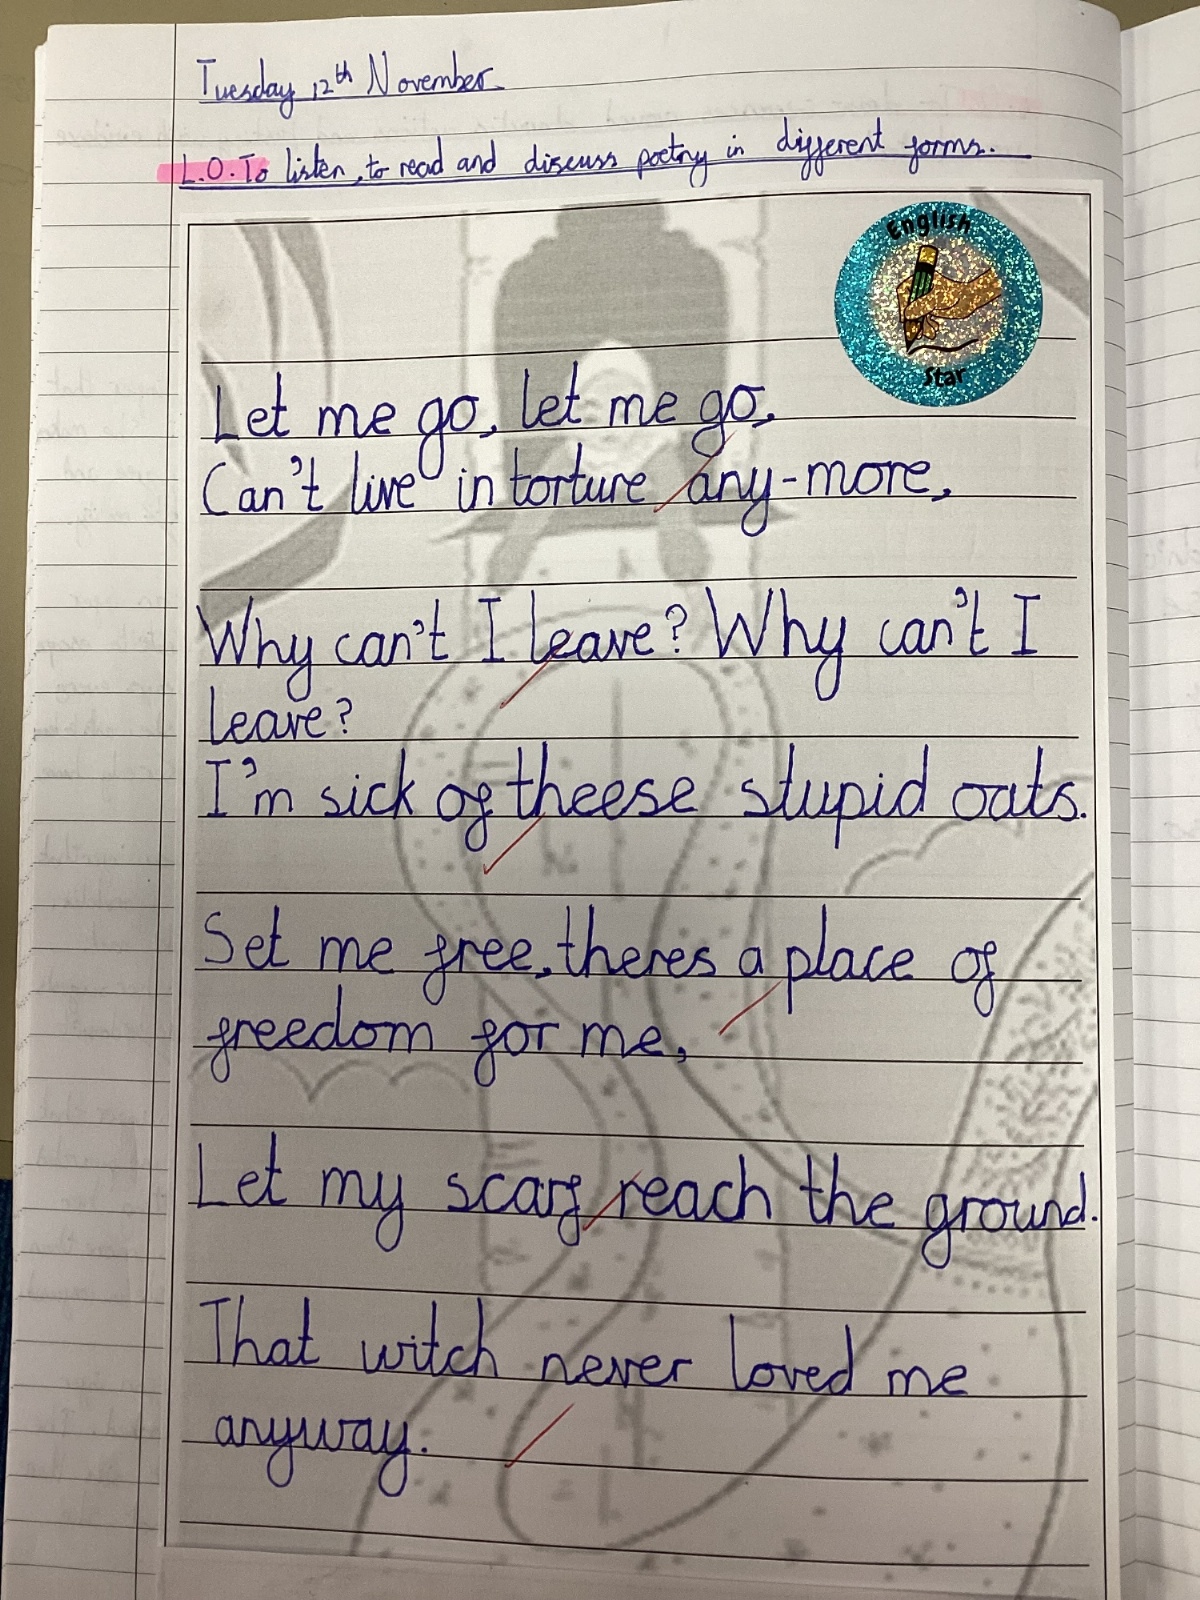 Tuesday 12th November.
L.O. To listen, to read and discuss poetry in different forms.
English
Star
Let me go, let me go,
Can't live in torture any-more,
Why can't I leave? Why can't I
leave?
I'm sick of theese stupid oats.
Set me free, theres a place of
freedom for me,
Let my scarf reach the ground.
That witch never loved me
anyway.